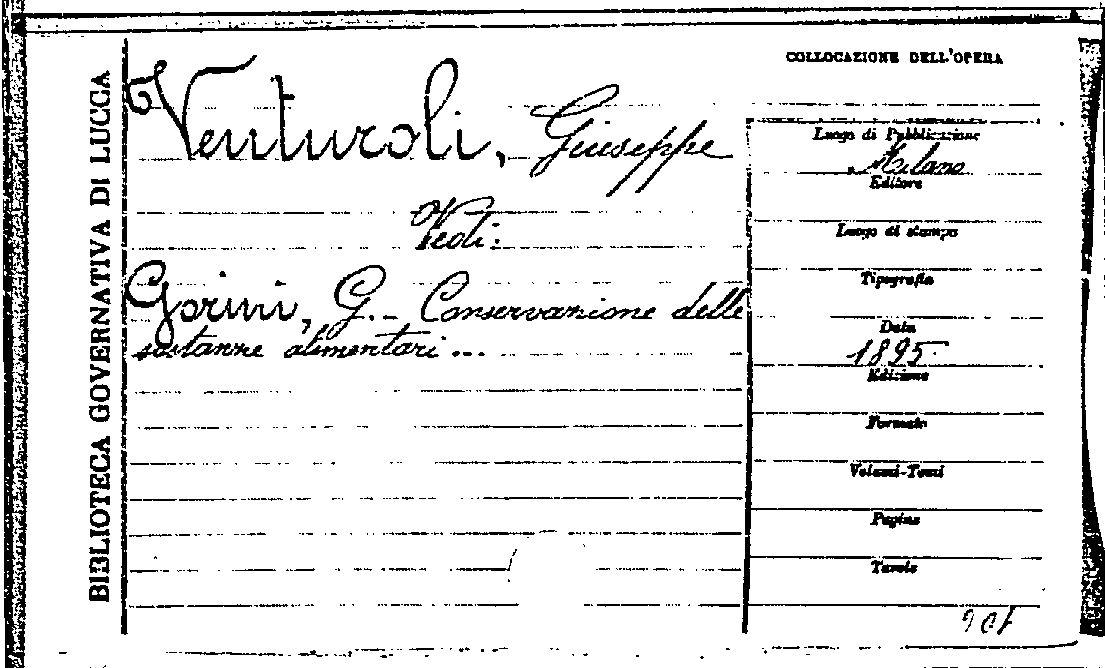 BIBLIOTECA GOVERNATIVA DI LUCCA
Venturoli, Giuseppe
Vedi:
Gorini, G. - Conservazione delle
sostanze alimentari ...
COLLOCAZIONE DELL'OPERA
Luogo di Pubblicazione
Milano
Editore
Luogo di stampa
Tipografia
Data
1895
Edizione
Formato
Volumi-Tomi
Pagine
Tavole